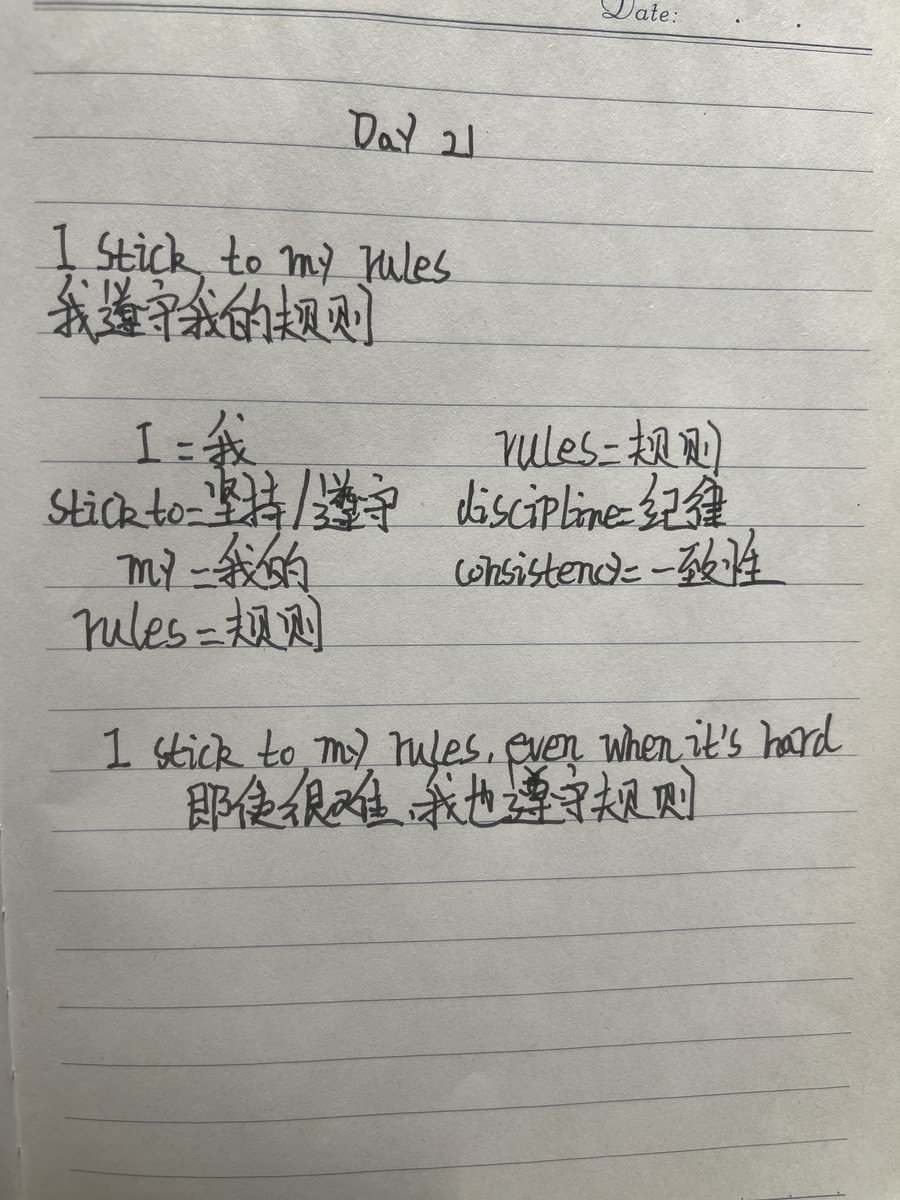 Date:
Day 21
I stick to my rules
我遵守我的规则
I = 我 rules = 规则
stick to = 坚持/遵守 discipline = 纪律
my = 我的 consistency = 一致性
rules = 规则
I stick to my rules, even when it's hard
即使很难,我也遵守规则